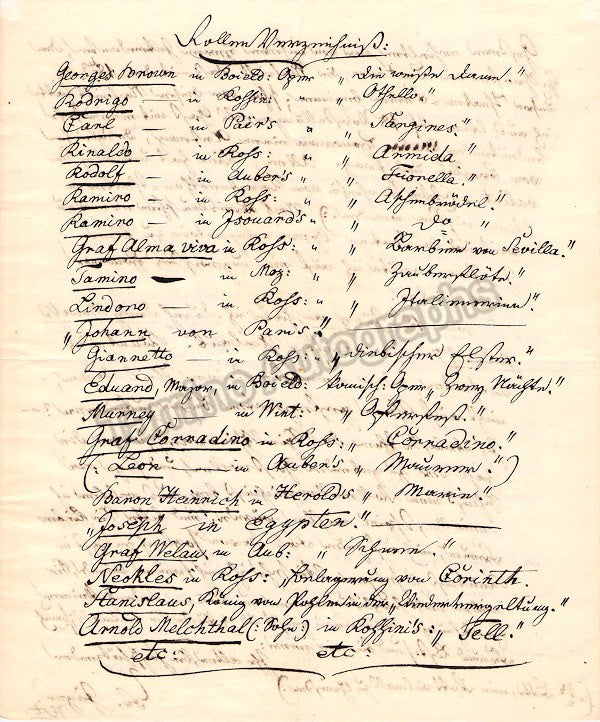 Rollen Verzeichniß:
Georges Brown in Boield: Oper „ die weiße Dame."
Rodrigo — in Rossin: „ „ Othello."
Earl — in Paër's „ „
Rinaldo — in Ross: „ „ Armida "
Rodolf — in Auber's „ Fiorella."
Ramiro — in Ross: „ „ Aschenbrödel."
Ramiro — in Isouard's „ „ do "
Graf Alma viva in Ross: „ „ Barbier von Sevilla."
Tamino — in Moz: „ „ Zauberflöte."
Lindoro — in Ross: „ „ Italienerinn."
„Johann von Paris."
Giannetto — in Ross: „ „ diebischer Elster."
Eduard, Major, in Boield: komisch: Oper „ Zwey Nächte."
Murney in Wint: „ Opferfest."
Graf Corradino in Ross: „ Corradino."
(: Leon — in Auber's „ Maurer:")
Baron Heinrich in Herold's „ Marie."
„Joseph in Egypten." —
Graf Welau in Aub: „ Schnee."
Neokles in Ross: „Belagerung von Corinth.
Stanislaus, König von Pohlen in der „Wiedervergeltung."
Arnold Melchthal (: Sohn :) in Rossini's: „ Tell."
etc: etc: